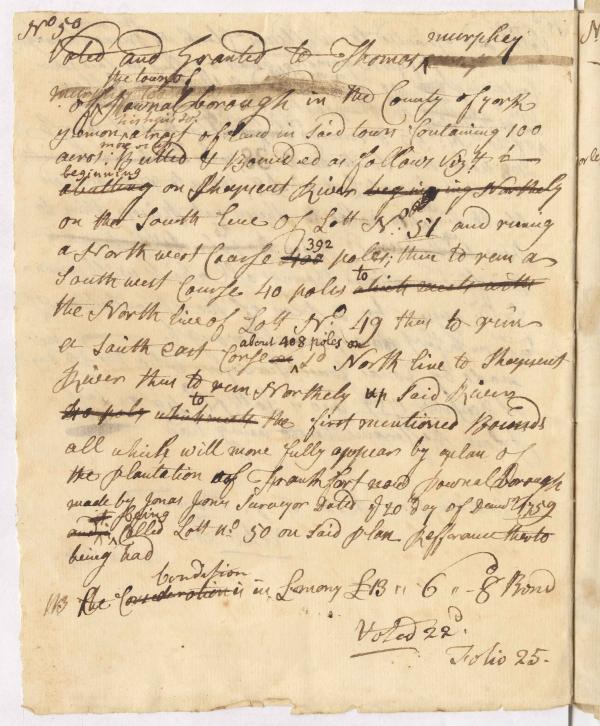 No 50
Voted and Granted to Thomas murphey
the town of
of Pownalborough in the County of york
yeomon a tract of Land in Said town Containing 100
acres more or less Butted & Bounded as follows Viz
beginning
abutting on Sheepscut River begining Northely
on the South line of Lott No. 51 and runing
a North west Course 392 poles, then to run a
South west Course 40 poles to which meets with
the North line of Lott No. 49 then to run
a South east Corse about 408 poles on Sd North line to Sheepscut
River then to run Northely up Said River
40 pols which meets to the first mentioned Bounds
all which will more fully appear by a plan of
the plantation of Frankfort now Pownalborough
made by Jonas Jones Surveyor Dated ye 20 Day of Decmbr 1759
being
Called Lott no. 50 on Said plan Refferance thereto
being had
Condition
113 The Consideration is in L mony £13 " 6 " 8 Bond
Voted 22d.
Folio 25.